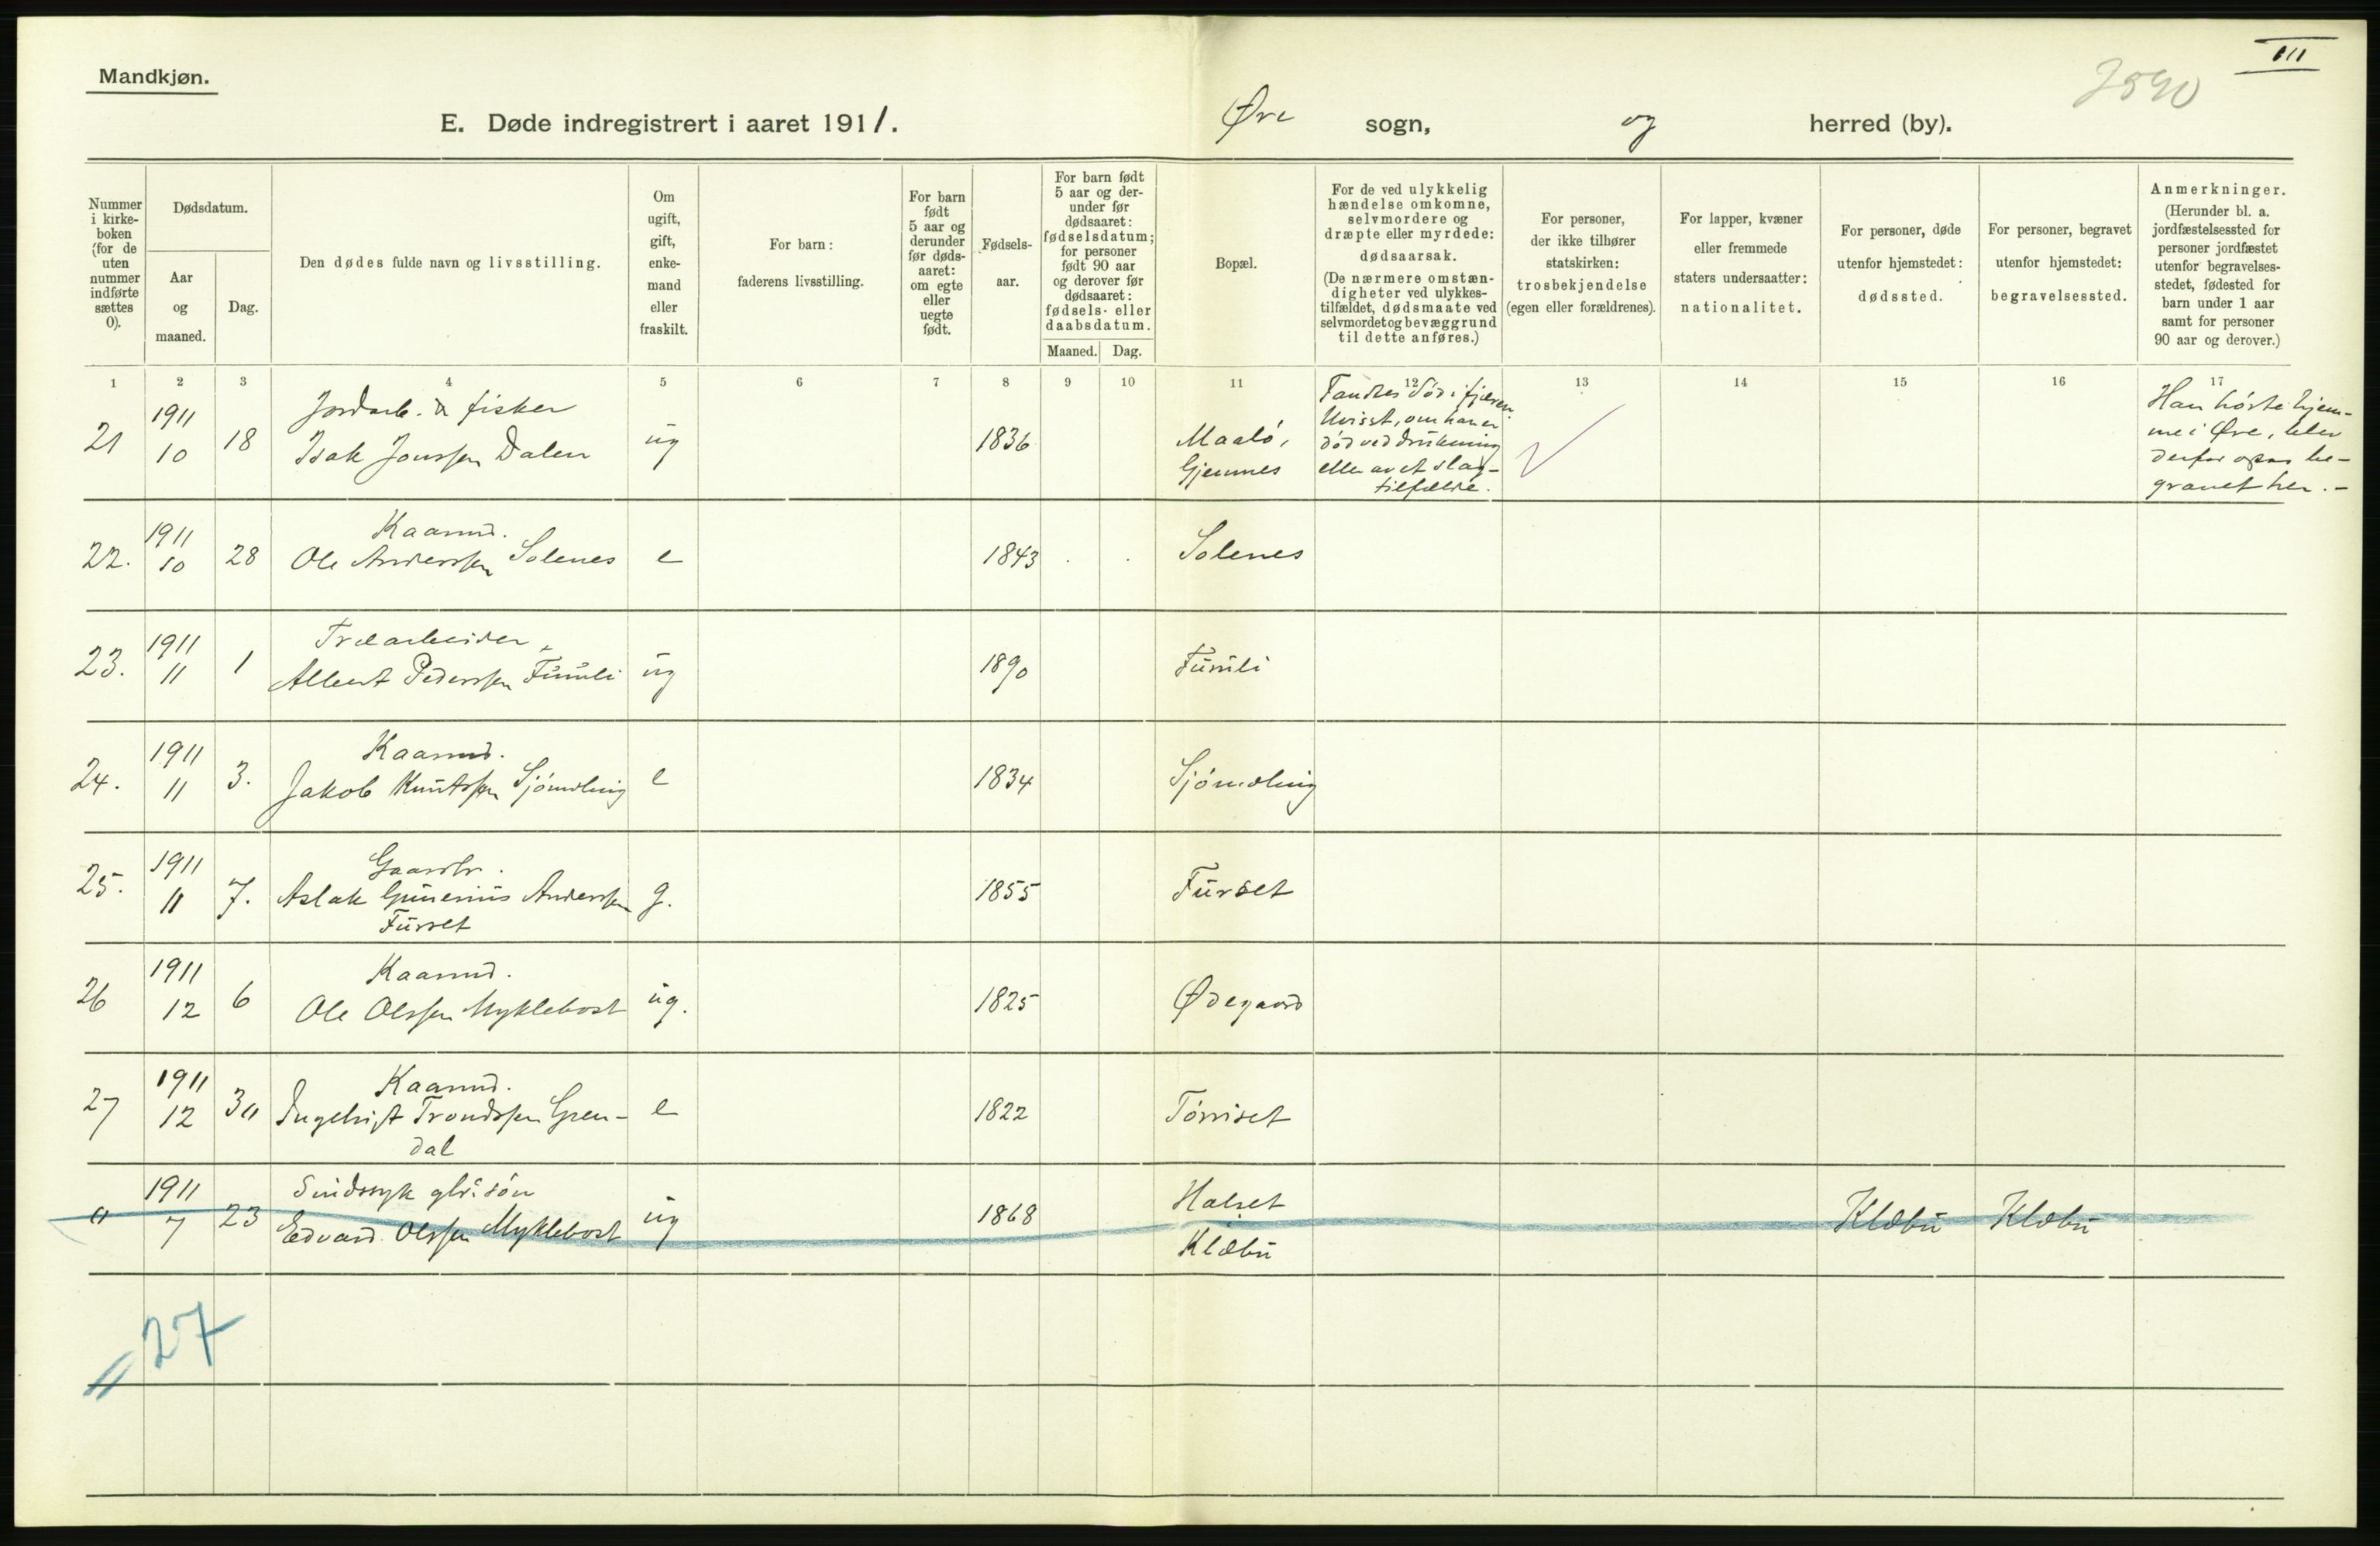 Mandkjøn.
III
2590
E. Døde indregistrert i aaret 1911.
Øre sogn, og herred (by).
Nummer i kirke-boken (for de uten nummer indførte sættes 0).
Dødsdatum.
Aar og maaned.
Dag.
Den dødes fulde navn og livsstilling.
Om ugift, gift, enke-mand eller fraskilt.
For barn: faderens livsstilling.
For barn født 5 aar og derunder før døds-aaret: om egte eller uegte født.
Fødsels-aar.
For barn født 5 aar og der-under før dødsaaret: fødselsdatum; for personer født 90 aar og derover før dødsaaret: fødsels- eller daabsdatum.
Maaned. Dag.
Bopæl.
For de ved ulykkelig hændelse omkomne, selvmordere og dræpte eller myrdede: dødsaarsak.
(De nærmere omstæn-digheter ved ulykkes-tilfældet, dødsmaate ved selvmordet og bevæggrund til dette anføres.)
For personer, der ikke tilhører statskirken: trosbekjendelse (egen eller forældrenes).
For lapper, kvæner eller fremmede staters undersaatter: nationalitet.
For personer, døde utenfor hjemstedet: dødssted.
For personer, begravet utenfor hjemstedet: begravelsessted.
Anmerkninger.
(Herunder bl. a. jordfæstelsessted for personer jordfæstet utenfor begravelses-stedet, fødested for barn under 1 aar samt for personer 90 aar og derover.)
1 2 3 4 5 6 7 8 9 10 11 12 13 14 15 16 17
21 1911 10 18 Jordarb. & fisker
Isak Jonssen Dalen ug 1836 Maalö, Gjemnes
Fandtes död i fjæren.
Uvisst, om han er
död ved drukning
eller av et slag-
tilfælde.
Han hörte hjem-
me i Øre, blev
derfor be-
gravet her.-
22. 1911 10 28 Kaarmd.
Ole Anderssen Solenes e 1843 Solenes
23. 1911 11 1 Træarbeider
Albert Pederssen Furuli ug 1890 Furuli
24. 1911 11 3. Kaarmd.
Jakob Knutssen Sjömæling e 1834 Sjömæling
25. 1911 11 7. Gaardbr.
Aslak Gunerius Anderssen g. 1855 Furset
Furset
26 1911 12 6 Kaarmd.
Ole Olssen Myklebost ug. 1825 Ødegaard
27 1911 12 30 Kaarmd.
Ingebrigt Trondssen Gren- e 1822 Törriset
dal
" 1911 7 23 Sindssyk gbr. sön
Edvard Olssen Myklebost ug 1868 Halset
Klæbu Klæbu Klæbu
27